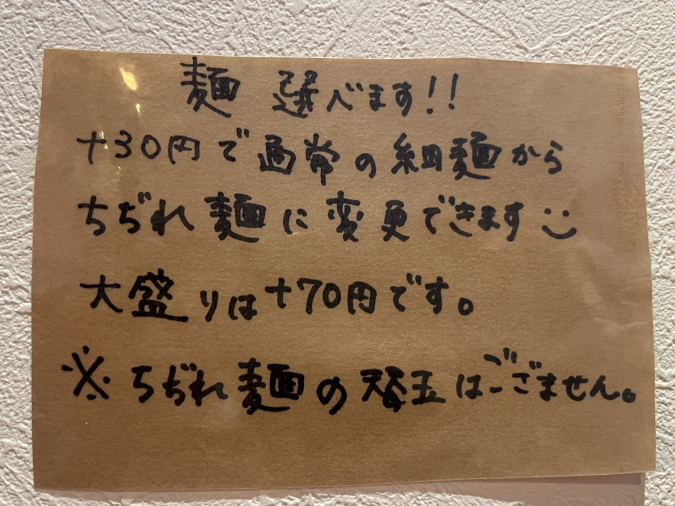 麺 選べます!!
+30円で通常の細麺から
ちぢれ麺に変更できます
大盛りは+70円です。
※ちぢれ麺の替玉はございません。